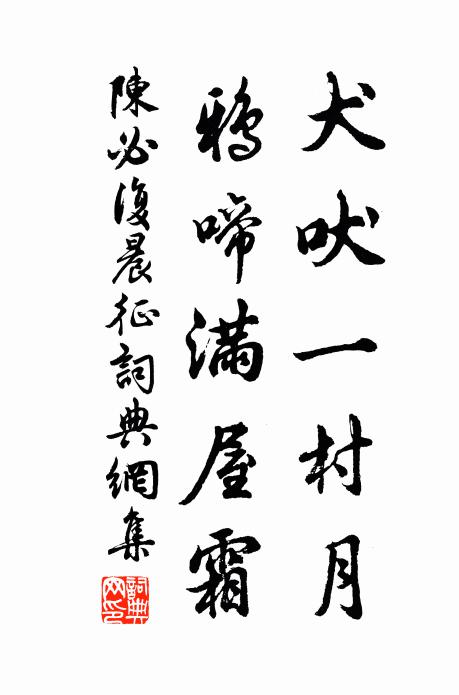 犬吠一村月
鴉啼滿屋霜
陳必復晨征詞典網集
詞典网印